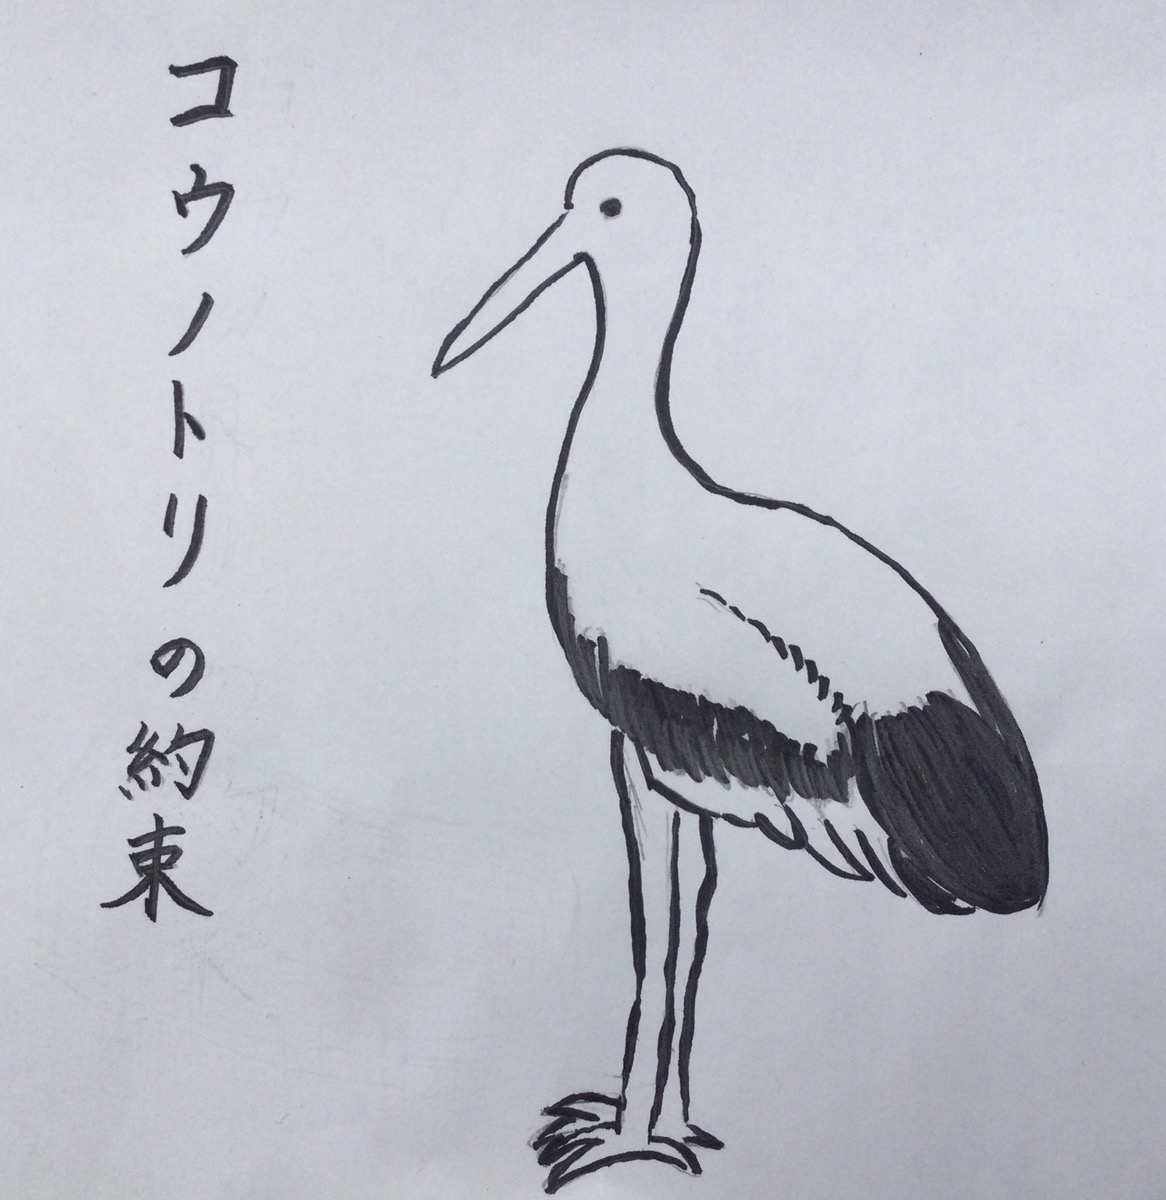 コウノトリの約束